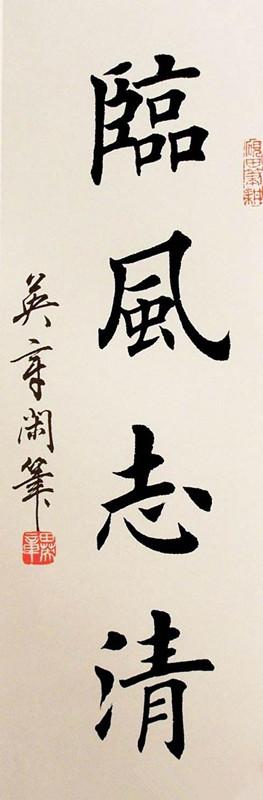 臨風志清
英章閑筆